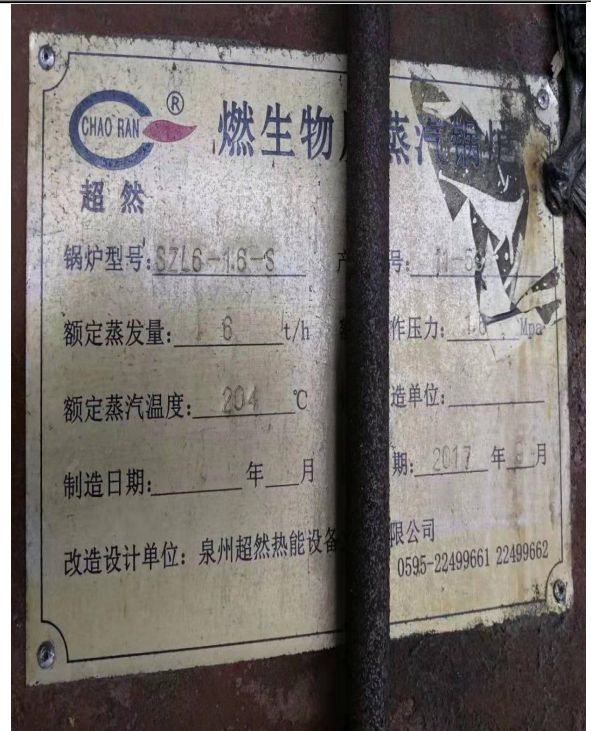 CHAO RAN ®
超然
燃生物 蒸汽锅炉
锅炉型号: SZL6-1.6-S 产 号:
额定蒸发量: 6 t/h 作压力: 1.6 Mpa
额定蒸汽温度: 204 ℃ 造单位:
制造日期: 年 月 期: 2017 年 月
改造设计单位: 泉州超然热能设备 限公司
0595-22499661 22499662